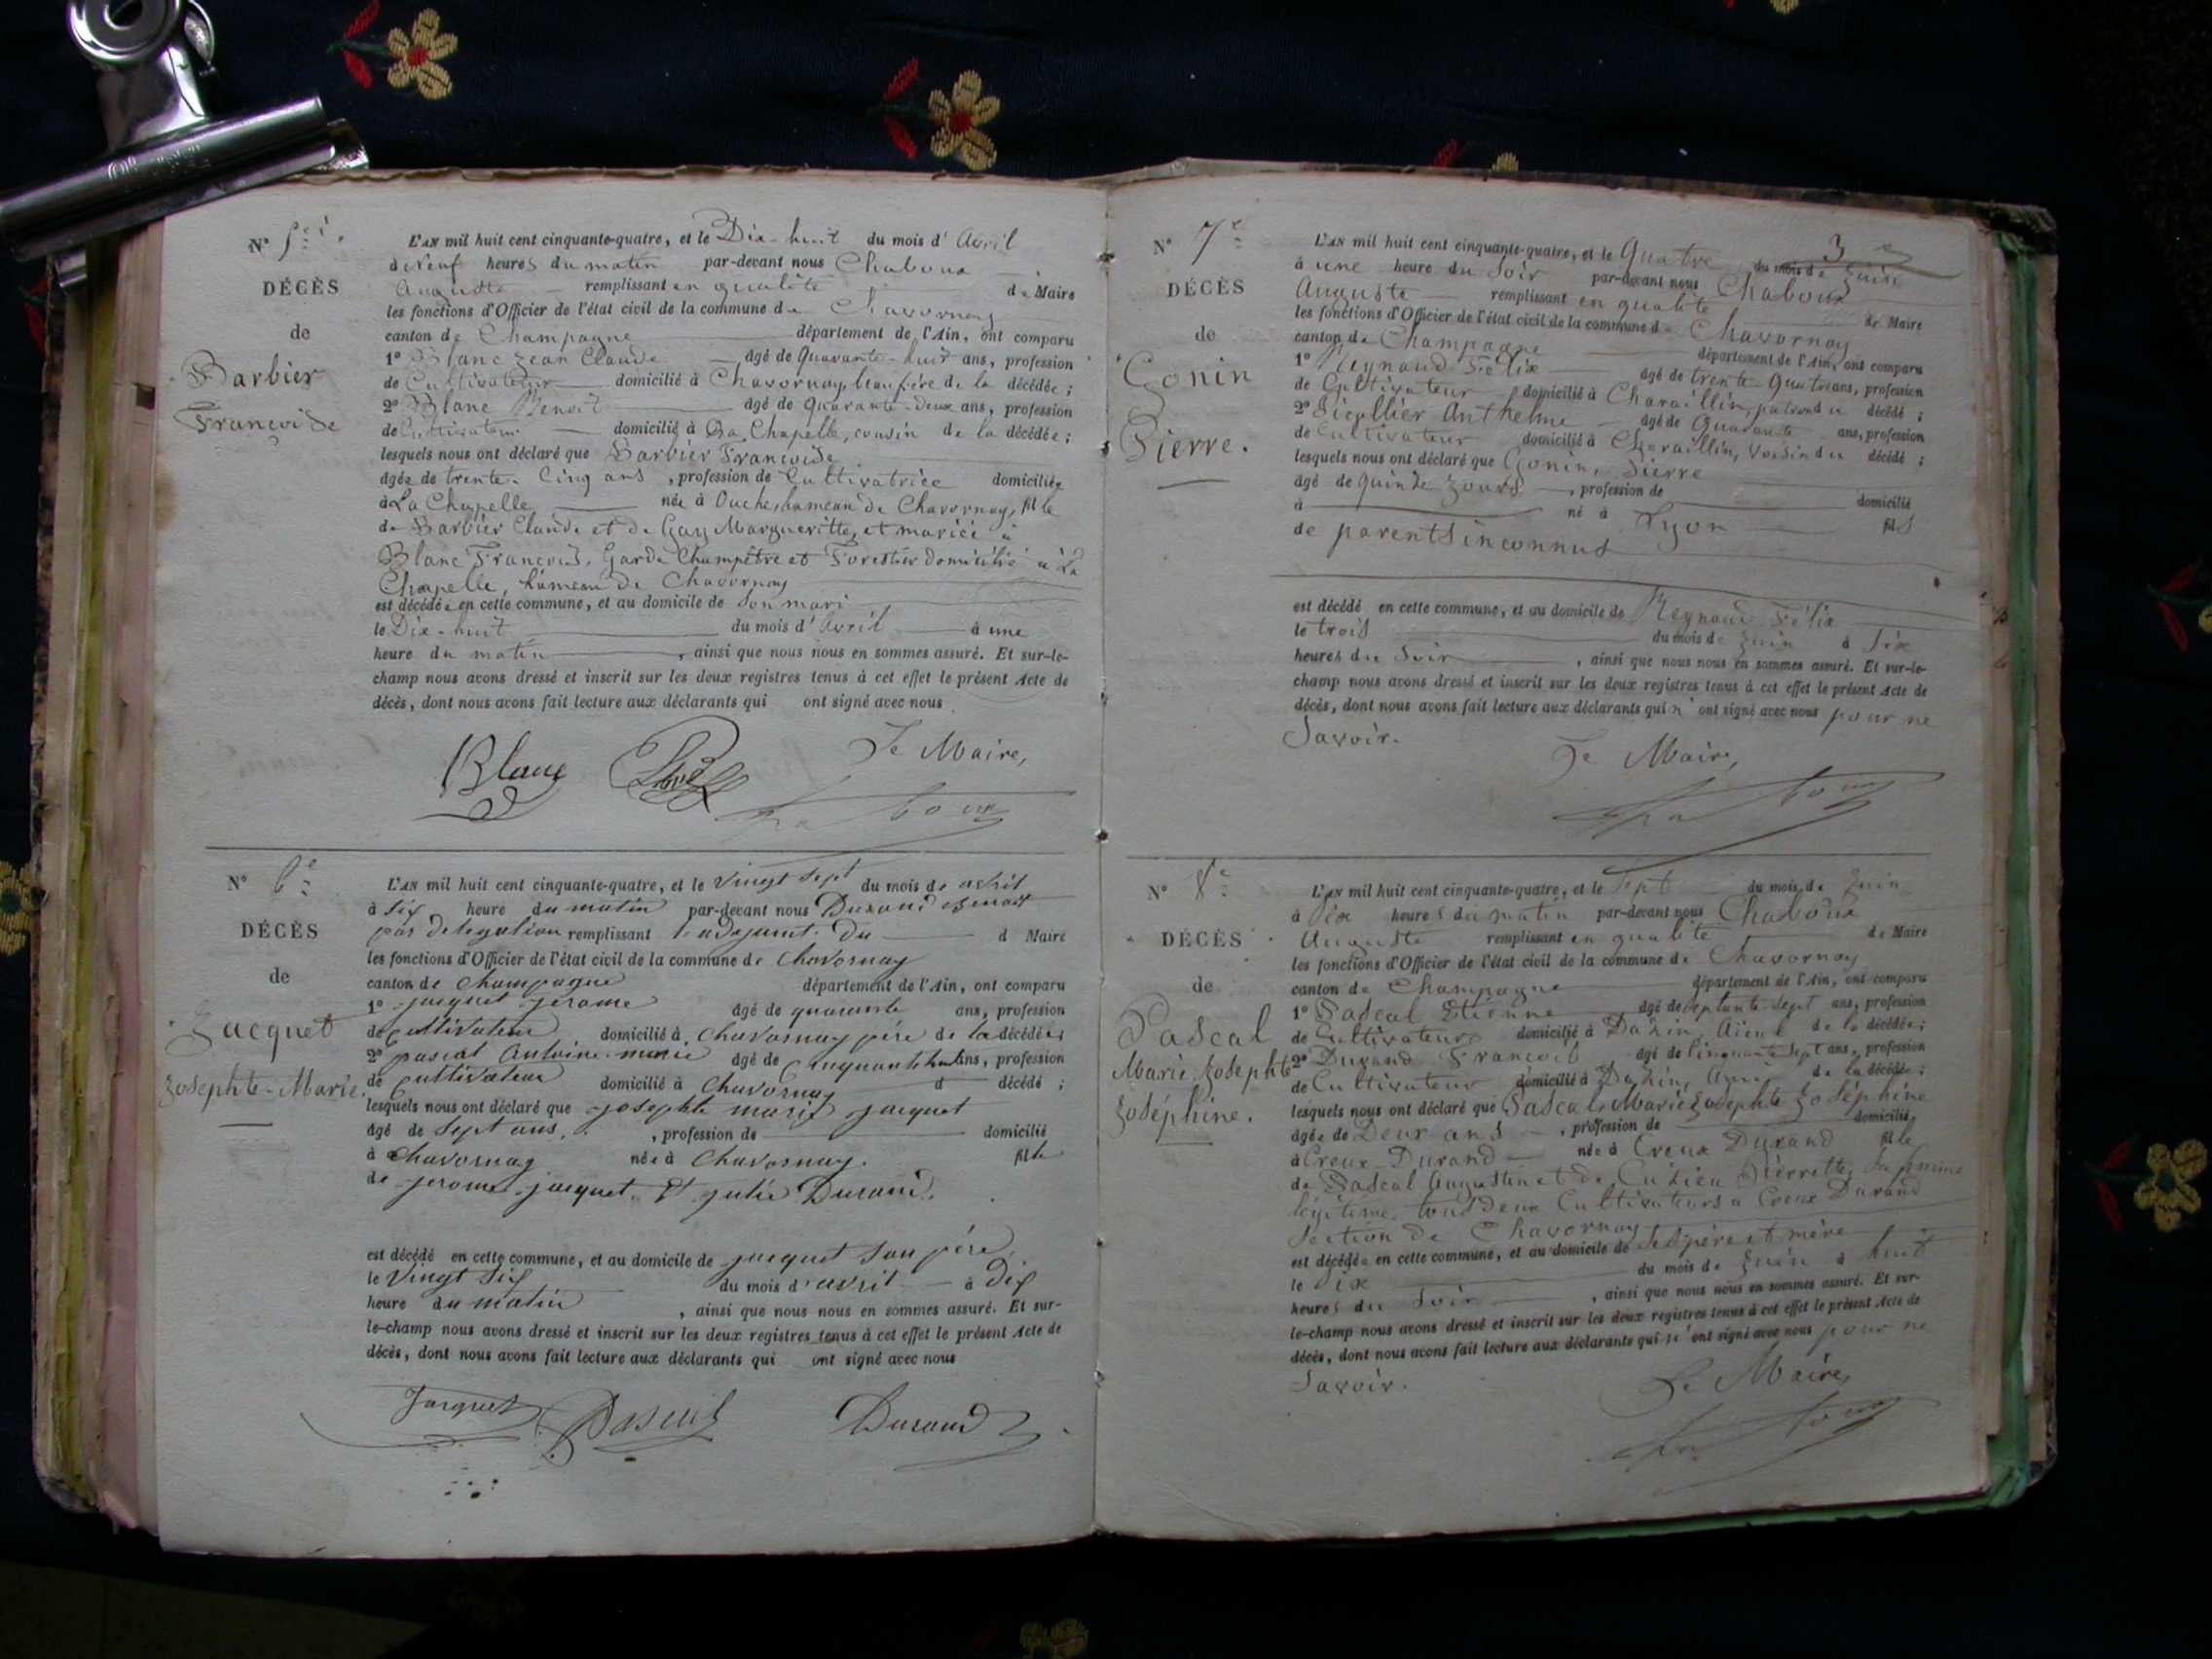 N° 5e
DÉCÈS
de
Barbier
Françoise
L'AN mil huit cent cinquante-quatre, et le Dix-huit du mois d'Avril
à Neuf heures du matin par-devant nous Chaboux
Auguste remplissant en qualité de Maire
les fonctions d'Officier de l'état civil de la commune de Chavornay
canton de Champagne département de l'Ain, ont comparu
1° Blanc Jean Claude âgé de Quarante-huit ans, profession
de Cultivateur domicilié à Chavornay, beau frère de la décédée ;
2° Blanc Benoit âgé de Quarante-Deux ans, profession
de Cultivateur domicilié à La Chapelle, cousin de la décédée ;
lesquels nous ont déclaré que Barbier Françoise
âgée de trente-Cinq ans, profession de Cultivatrice domiciliée
à La Chapelle née à Ouche, hameau de Chavornay, fille
de Barbier Claude et de Gay Margueritte, et mariée à
Blanc François, Garde Champêtre et Forestier domicilié à La
Chapelle, hameau de Chavornay
est décédée en cette commune, et au domicile de son mari
le Dix-huit du mois d'Avril à une
heure du matin, ainsi que nous nous en sommes assuré. Et sur-le-
champ nous avons dressé et inscrit sur les deux registres tenus à cet effet le présent Acte de
décès, dont nous avons fait lecture aux déclarants qui ont signé avec nous
Le Maire,
Blanc Chaboux
N° 6e
DÉCÈS
de
Jacquet
Josephte-Marie.
L'AN mil huit cent cinquante-quatre, et le vingt sept du mois de avril
à six heure du matin par-devant nous Durand Benoit
par delegation remplissant l'adjoint du d Maire
les fonctions d'Officier de l'état civil de la commune de Chavornay
canton de Champagne département de l'Ain, ont comparu
1° jacquet jerome âgé de quarante ans, profession
de Cultivateur domicilié à Chavornay père de la décédée ;
2° pascal Antoine marie âgé de cinquante huit ans, profession
de Cultivateur domicilié à Chavornay d décédé ;
lesquels nous ont déclaré que josephte marie jacquet
âgé de sept ans, profession de domicilié
à Chavornay née à Chavornay. fille
de jerome jacquet Et julie Durand.
est décédé en cette commune, et au domicile de jacquet son père
le vingt six du mois d'avril à dix
heure du matin, ainsi que nous nous en sommes assuré. Et sur-
le-champ nous avons dressé et inscrit sur les deux registres tenus à cet effet le présent Acte de
décès, dont nous avons fait lecture aux déclarants qui ont signé avec nous
Jacquet Pascal Durand
3
N° 7e
DÉCÈS
de
Gonin
Pierre.
L'AN mil huit cent cinquante-quatre, et le Quatre du mois de Juin
à une heure du Soir par-devant nous Chaboux
Auguste remplissant en qualité de Maire
les fonctions d'Officier de l'état civil de la commune de Chavornay
canton de Champagne département de l'Ain, ont comparu
1° Reynaud Félix âgé de trente-Quatre ans, profession
de Cultivateur domicilié à Charaillin, patron du décédé ;
2° Anthelme âgé de Quarante ans, profession
de Cultivateur domicilié à Charaillin, Voisin du décédé ;
lesquels nous ont déclaré que Gonin, Pierre
âgé de Quinze Jours, profession de
à domicilié
né à Lyon fils
de parents inconnus
est décédé en cette commune, et au domicile de Reynaud Félix
le trois du mois de Juin à Six
heures du Soir, ainsi que nous nous en sommes assuré. Et sur-le-
champ nous avons dressé et inscrit sur les deux registres tenus à cet effet le présent Acte de
décès, dont nous avons fait lecture aux déclarants qui n'ont signé avec nous pour ne
Savoir.
Le Maire,
Chaboux
N° 8e
DÉCÈS
de
Pascal
Marie, Josephte
Joséphine.
L'AN mil huit cent cinquante-quatre, et le Sept du mois de Juin
à Dix heures du matin par-devant nous Chaboux
Auguste remplissant en qualité de Maire
les fonctions d'Officier de l'état civil de la commune de Chavornay
canton de Champagne département de l'Ain, ont comparu
1° Pascal Etienne âgé de septante-sept ans, profession
de Cultivateur domicilié à Dazin, Aïeul de la décédée ;
2° Durand François âgé de Cinquante Sept ans, profession
de Cultivateur domicilié à Dazin, Ami de la décédée ;
lesquels nous ont déclaré que Pascal, Marie Josephte Joséphine
âgée de Deux ans, profession de domicilié
à Creux-Durand née à Creux Durand fille
de Pascal Augustin et de Cuzieu Pierrette, Sa femme
légitime, tous Deux Cultivateurs à Creux Durand
Section de Chavornay
est décédée en cette commune, et au domicile de ses père et mère
le Six du mois de Juin à huit
heures du Soir, ainsi que nous nous en sommes assuré. Et sur-
le-champ nous avons dressé et inscrit sur les deux registres tenus à cet effet le présent Acte de
décès, dont nous avons fait lecture aux déclarants qui n'ont signé avec nous pour ne
Savoir.
Le Maire,
Chaboux